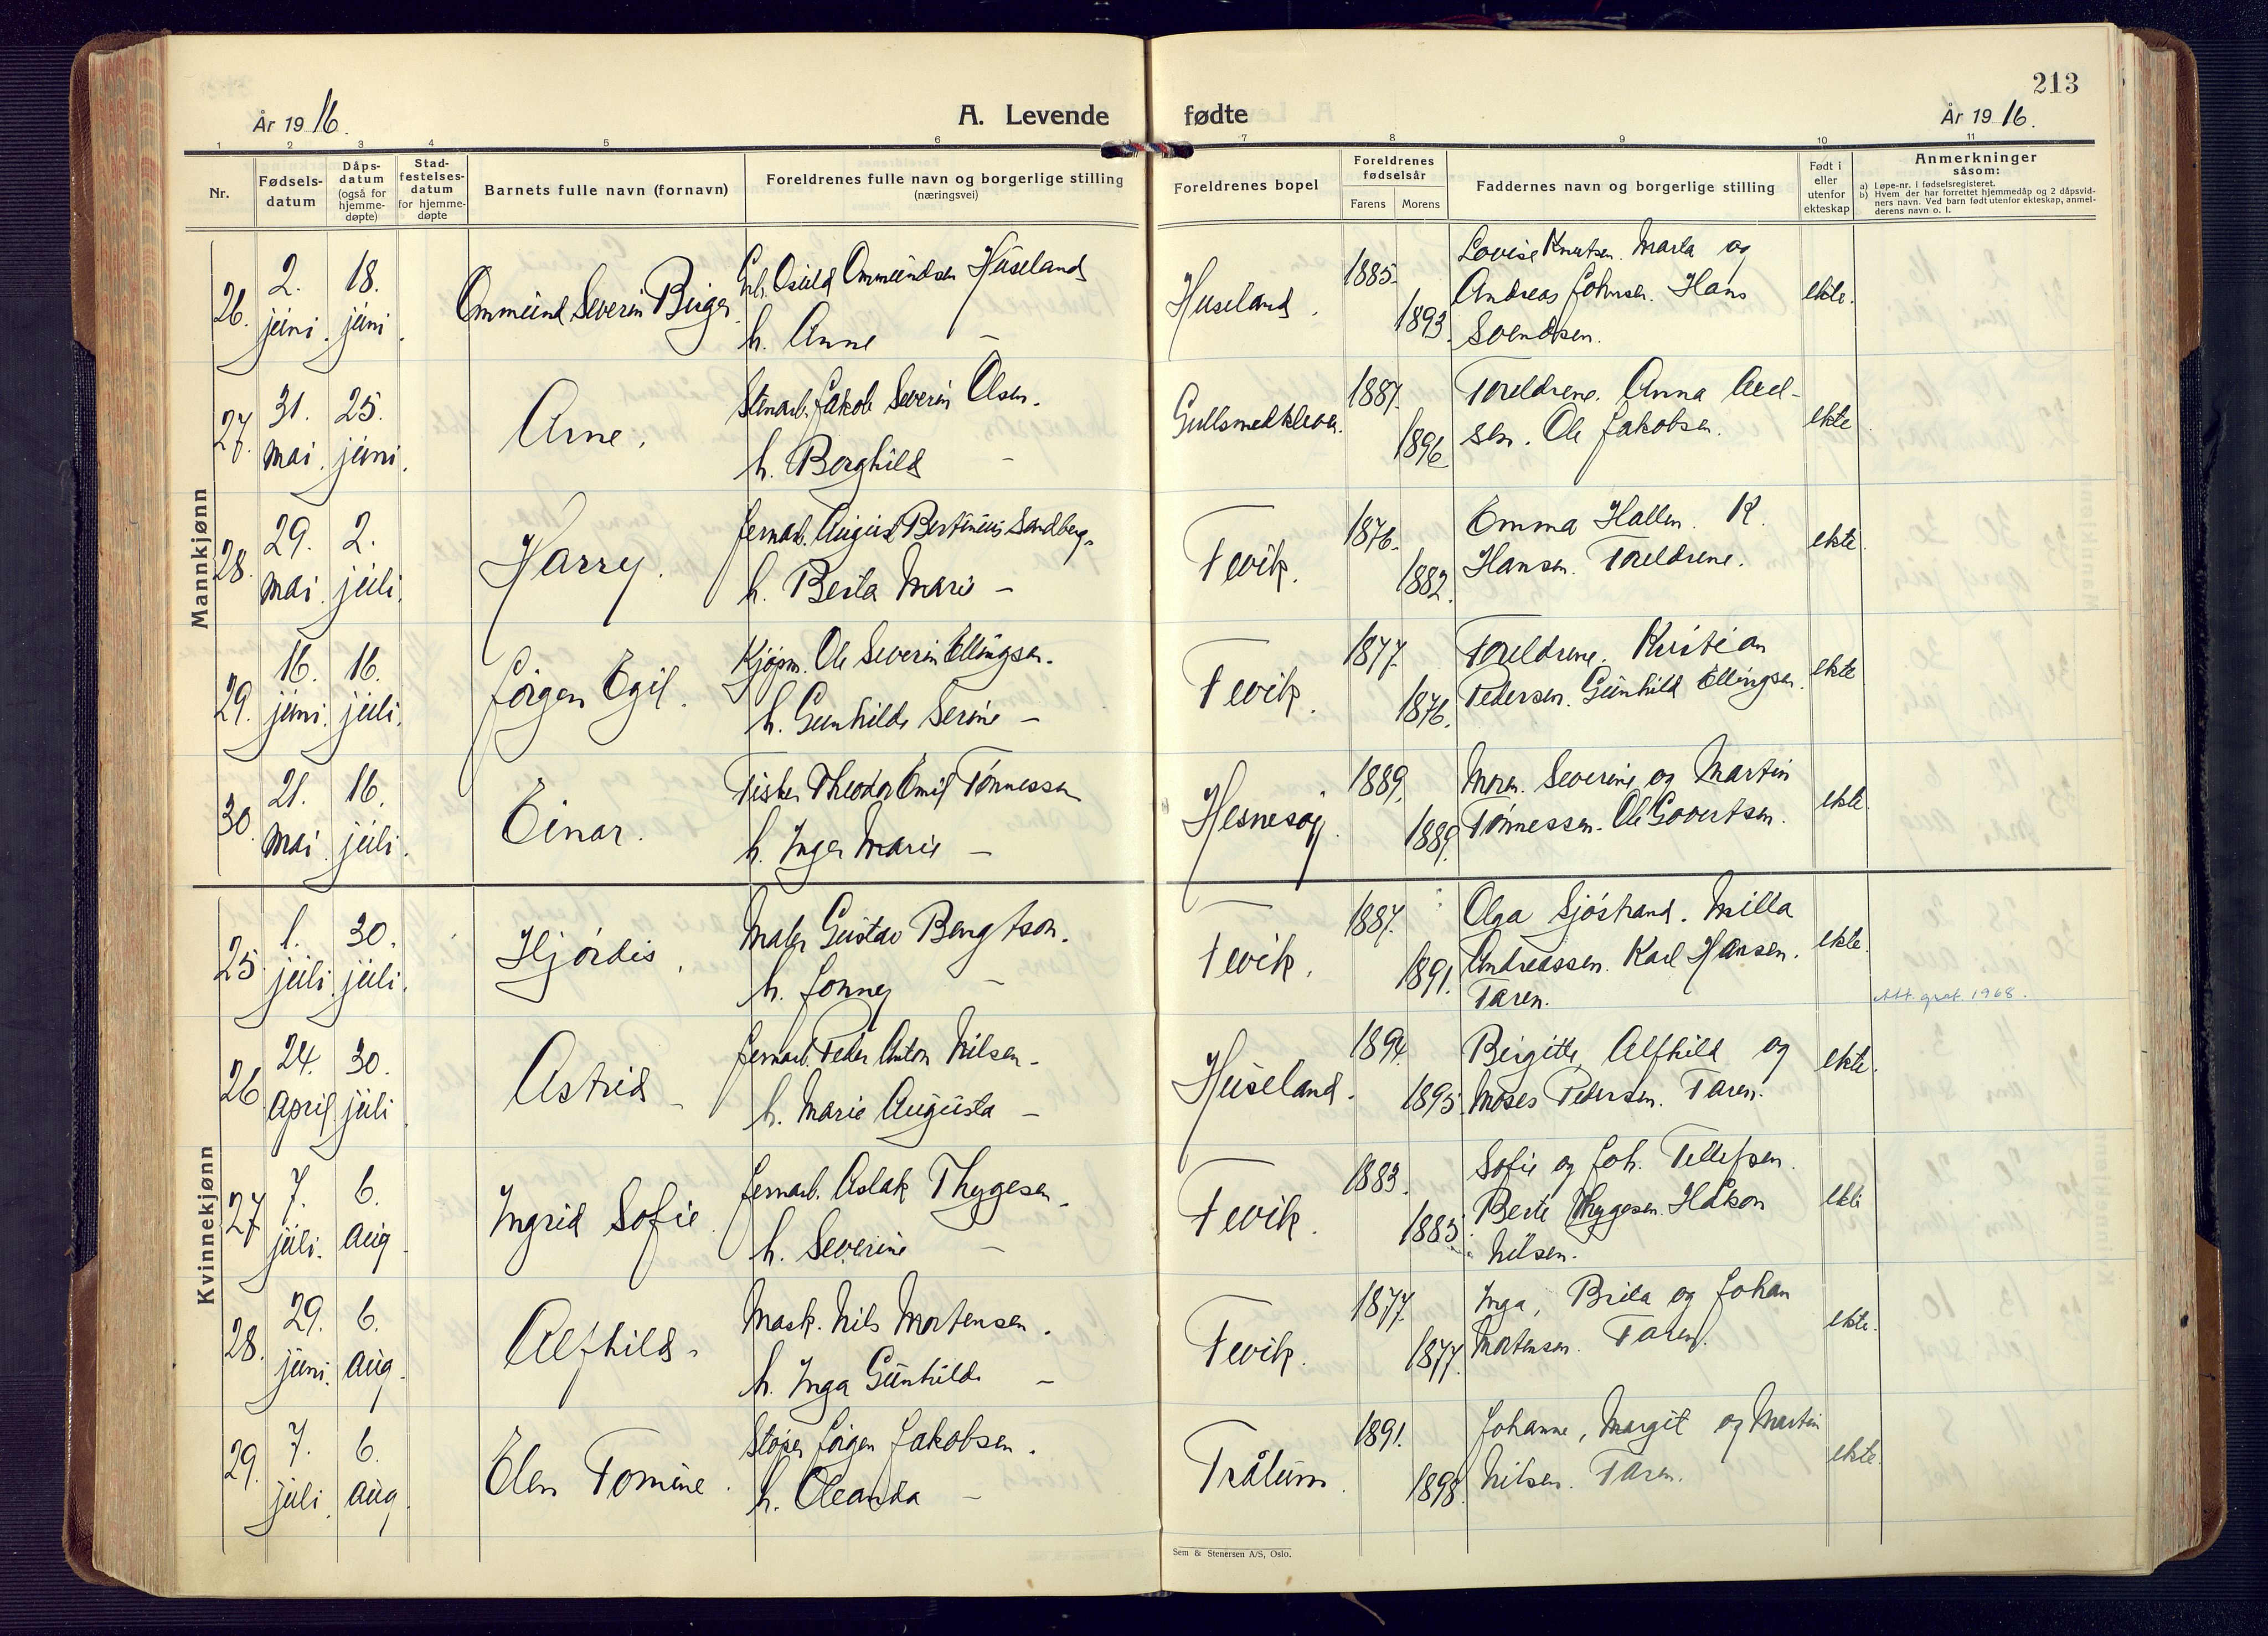 213
År 1916.
A. Levende fødte
År 1916.
1 2 3 4 5 6 7 8 9 10 11
Nr.
Fødsels-
datum
Dåps-
datum
(også for
hjemme-
døpte)
Stad-
festelses-
datum
for hjemme-
døpte
Barnets fulle navn (fornavn)
Foreldrenes fulle navn og borgerlige stilling
(næringsvei)
Foreldrenes bopel
Foreldrenes
fødselsår
Farens Morens
Faddernes navn og borgerlige stilling
Født i
eller
utenfor
ekteskap
Anmerkninger
såsom:
a) Løpe-nr. i fødselsregisteret.
b) Hvem der har forrettet hjemmedåp og 2 dåpsvid-
ners navn. Ved barn født utenfor ekteskap, anmel-
derens navn o. l.
Mannkjønn
26. 2. juni. 18. juni. Ommund Severin Birger
Osuld Ommundsen Huseland
h. Anne –
Huseland. 1885. 1893.
Lovise Knutsen. Marta og
Andreas Johnsen. Hans
Svendsen.
ekte.
27. 31. mai. 25. juni. Arne.
Stenarb. Jakob Severin Olsen.
h. Borghild –
Gullsmedkleva. 1887. 1896
Foreldrene. Anna Axel-
sen. Ole Jakobsen.
ekte
28. 29. mai. 2. juli. Harry.
Jernarb. August Bertinius Sandberg.
h. Berta Marie –
Fevik. 1876. 1882.
Emma Hallen. K.
Hansen. Foreldrene.
ekte
29. 16. juni. 16. juli. Jörgen Egil.
Kjøpm. Ole Severin Ellingsen.
h. Gunhilde Serine –
Fevik. 1877. 1876.
Foreldrene. Kristian
Pedersen. Gunhild Ellingsen.
ekte
30. 21. mai. 16. juli. Einar.
Fisker Theodor Emil Tønnessen
h. Inger Marie –
Hesnesøy. 1889. 1889.
Moren. Severine og Martin
Tønnessen. Ole Govertsen.
ekte
Kvinnekjønn
25 1. juli. 30. juli. Hjördis.
Maler Gustav Bengtson.
h. Jonney –
Fevik. 1887. 1891.
Olga Sjöstrand. Milla
Andreassen. Karl Hansen.
Faren.
ekte.
1968.
26 24. april. 30. juli. Astrid
Jernarb. Peder Anton Nilsen.
h. Marie Augusta –
Huseland. 1894. 1895.
Birgitte, Alfhild og
Moses Pedersen. Faren.
ekte.
27 7. juli. 6. aug. Ingrid Sofie.
Jernarb. Aslak Thygesen.
h. Severine –
Fevik. 1883. 1885.
Sofie og Joh. Tellefsen.
Berte Thygesen. Håkon
Nilsen.
ekte
28. 29. juni. 6. aug. Alfhild.
Mask. Nils Mortensen.
h. Inga Gunhilde –
Fevik. 1877. 1877.
Inga, Brita og Johan
Mortensen. Faren.
ekte.
29. 7. juli. 6. aug. Elen Tomine.
Støper Jörgen Jakobsen.
h. Oleanda –
Trålum. 1891. 1898.
Johanne, Margit og Martin
Nilsen. Faren.
ekte.
Sem & Stenersen A/S, Oslo.